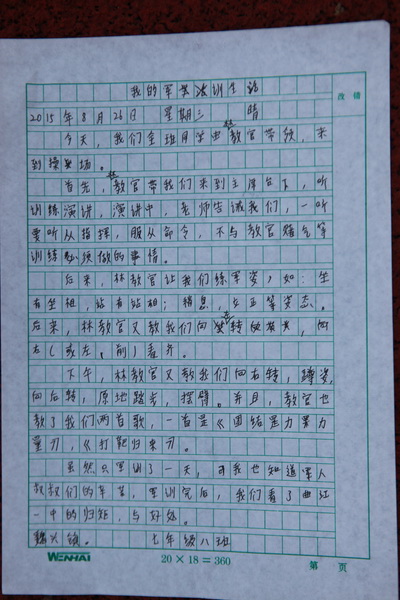 我的军训生活
改错
2015年8月26日 星期三 晴
今天,我们全班同学由林教官带领,来
到操场。
首先,林教官带我们来到主席台下,听
训练演讲,演讲中,老师告诫我们,一听
要听从指挥,服从命令,不与教官赌气等
训练必须做的事情。
后来,林教官让我们练军姿,如:坐
有坐相,站有站相;稍息,立正等姿态。
后来,林教官又教我们向 转 ,向
右(或左、前)看齐。
下午,林教官又教我们向右转,蹲姿,
向后转,原地踏步,摆臂。并且,教官也
教了我们两首歌,一首是《团结是力量力
量》,《打靶归来》。
虽然只军训了一天,可我也知道军人
叔叔们的辛苦,军训完后,我们看了曲江
一中的归距,与好处。
七年级八班
WENHAI
20×18=360
第 页